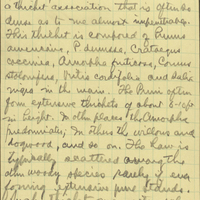 a thicket association that is often so
dense as to be almost impenetrable.
This thicket is composed of Prunus
americana, P. dumosa, Crataegus
coccinea, Amorpha fruticosa, Cornus
stolonifera, Vitis cordifolia and Salix
nigra in the main. The Pruni often
form extensive thickets of about 8-10 ft
in height. In other places the Amorpha
predominates; In others the willows and
dogwood, and so on. The haw is
typically scattered among the
other woody species rarely if ever
forming extensive pure stands.